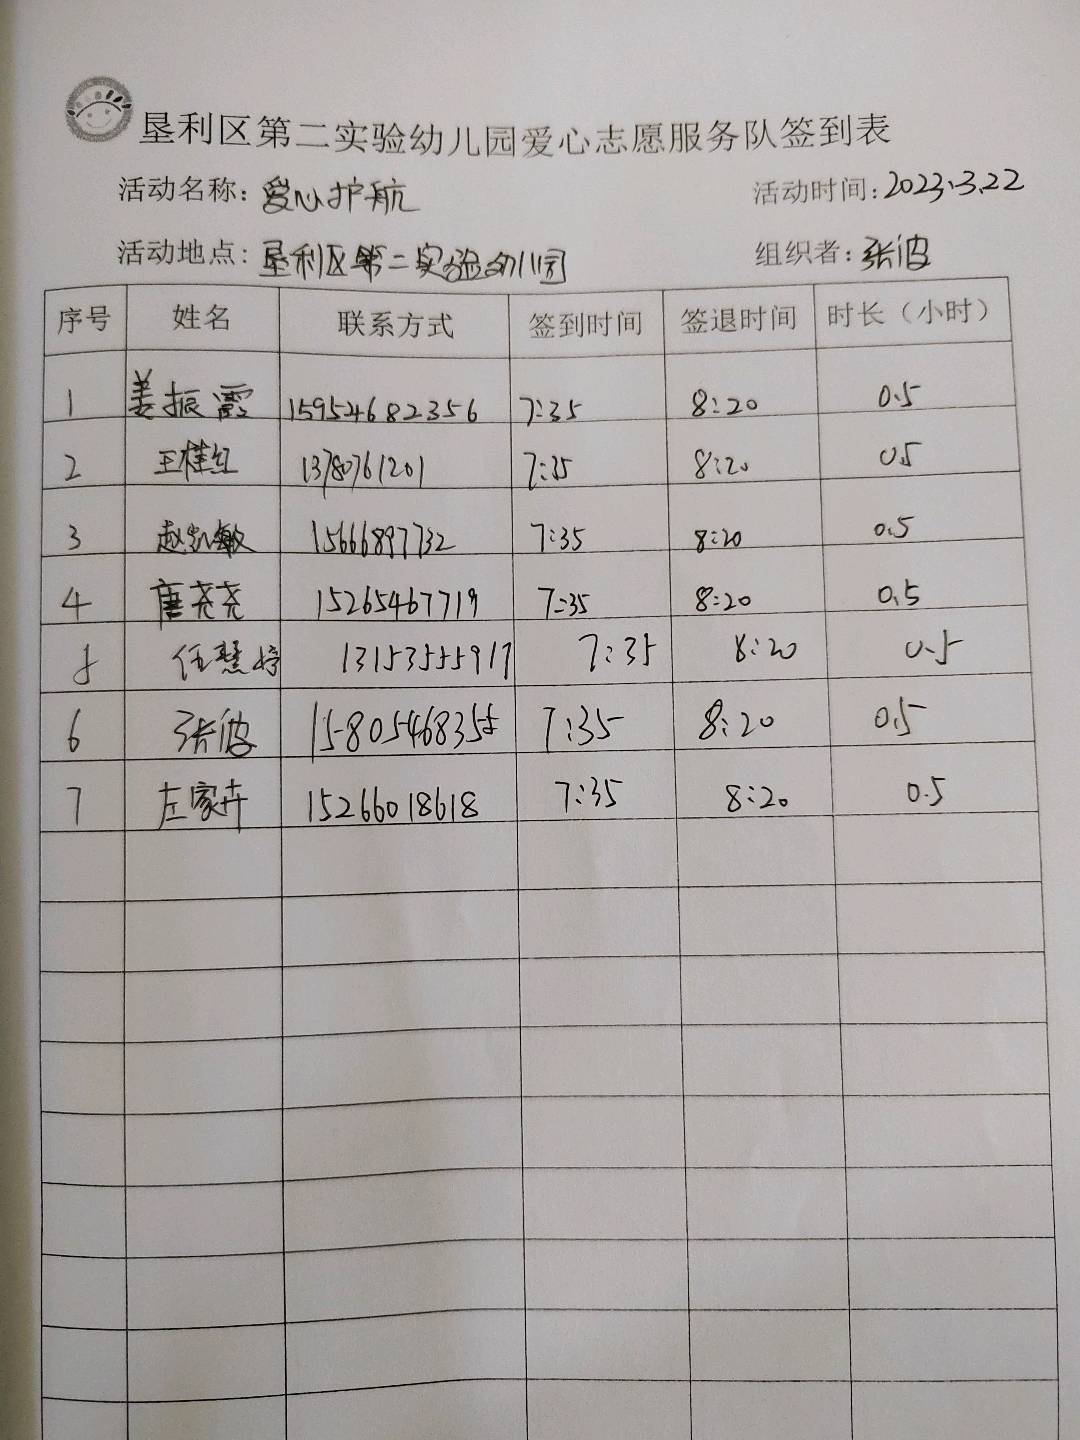 垦利区第二实验幼儿园爱心志愿服务队签到表
活动名称: 爱心护航 活动时间: 2023.3.22
活动地点: 垦利区第二实验幼儿园 组织者: 张波
序号 姓名 联系方式 签到时间 签退时间 时长（小时）
1 姜振霞 15954682356 7:35 8:20 0.5
2 王桂红 13780761201 7:35 8:20 0.5
3 赵凯敏 15666897732 7:35 8:20 0.5
4 唐尧尧 15265467719 7:35 8:20 0.5
5 任慧婷 13153555917 7:35 8:20 0.5
6 张波 15805468355 7:35 8:20 0.5
7 左家卉 15266018618 7:35 8:20 0.5